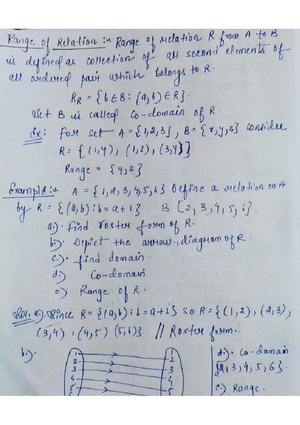 Range of Relation :- Range of relation R from A to B
is defined as collection of all second elements of
all ordered pair which belongs to R.
R_R = {b∈B : (a,b)∈R}.
Set B is called Co-domain of R.
Ex: For set A = {1,2,3}, B = {x,y,z} consider
R = {(1,y), (1,z), (3,y)}
Range = {y,z}
Example:- A = {1,2,3,4,5,6} Define a relation on A
by R = {(a,b) : b = a+1} B [2,3,4,5,6}.
a). Find roster form of R.
b). Depict the arrow diagram of R.
c). find domain
d). Co-domain
e) Range of R.
Sol. a). Since R = {(a,b) : b = a+1} so R = {(1,2), (2,3),
(3,4), (4,5) (5,6)}. // Roster form.
b).
1 1
2 2
3 3
4 4
5 5
d). Co-domain
1,3,4,5,6}.
e). Range